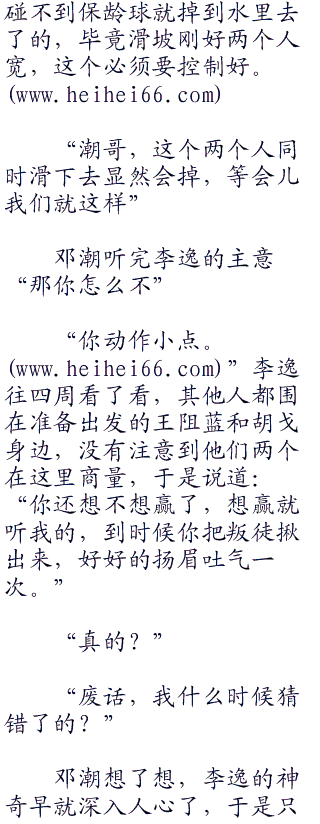 碰不到保龄球就掉到水里去
了的，毕竟滑坡刚好两个人
宽，这个必须要控制好。
(www.heihei66.com)
“潮哥，这个两个人同
时滑下去显然会掉，等会儿
我们就这样”
邓潮听完李逸的主意
“那你怎么不”
“你动作小点。
(www.heihei66.com)”李逸
往四周看了看，其他人都围
在准备出发的王阻蓝和胡戈
身边，没有注意到他们两个
在这里商量，于是说道：
“你还想不想赢了，想赢就
听我的，到时候你把叛徒揪
出来，好好的扬眉吐气一
次。”
“真的？”
“废话，我什么时候猜
错了的？”
邓潮想了想，李逸的神
奇早就深入人心了，于是只